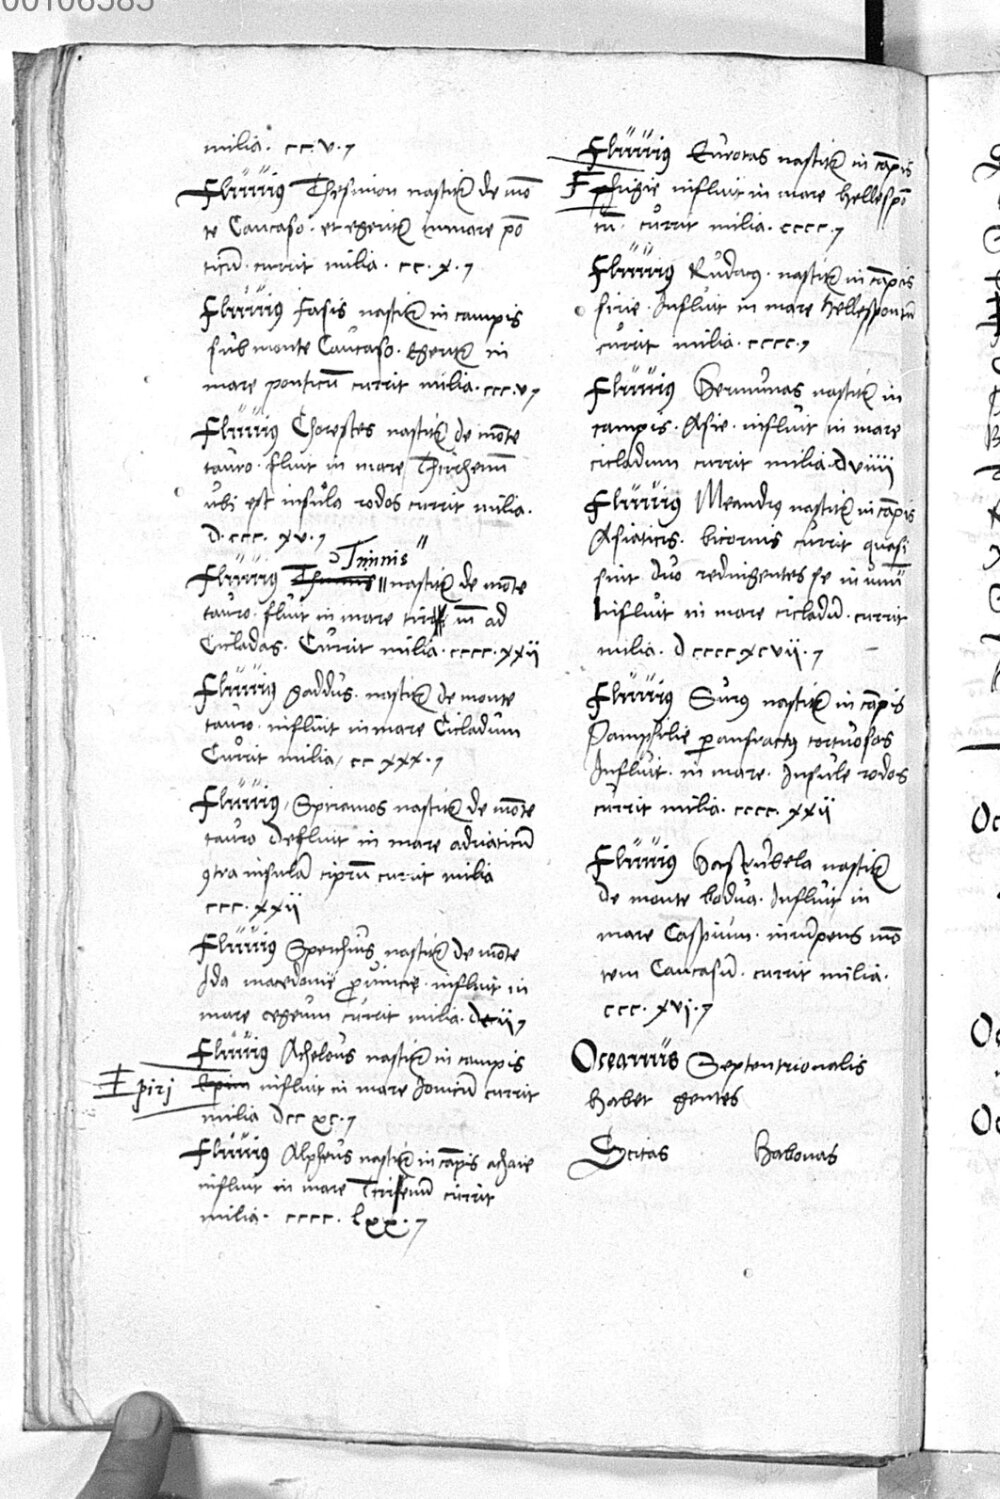 milia. cc.v.7
Fluuius Thesinion nascit̃ de mõ
te Caucaso. et egerit̃ in mare põ
ticũ. currit milia. cc.x.7
Fluuius Fasis nascit̃ in campis
sub monte Caucaso. egerit̃ in
mare ponticũ currit milia. ccc.v7
Fluuius Chorestes nascit̃ de mõte
tauro. fluit in mare
ubi est insula rodos currit milia.
D.ccc.xv.7
Tinnis
Fluuius nascit̃ de mõte
tauro. fluit in mare ad
Cicladas. Currit milia. cccc.xxii
Fluuius gaddus. nascit̃ de monte
tauro. influit in mare Cicladum
Currit milia, cc xxx.7
Fluuius, Spiramos nascit̃ de mõte
tauro defluit in mare adriaticũ
ꝯtra insulã ciprũ currit milia
ccc.xxii
Fluuius Sperchius nascit̃ de mõte
Ida macedonie ꝓuincie. influit in
mare egeum currit milia.
Fluuius Achelous nascit̃ in campis
Epiri influit in mare Ionicũ currit
milia Dcc xc.7
Fluuius Alpheus nascit̃ in cãpis achaie
influit in mare currit
milia. cccc. lxx.7
Fluuius Eurotas nascit̃ in cãpis
Phrigie influit in mare hellespõ
tũ. currit milia. cccc.7
Fluuius Rudacus. nascit̃ in cãpis
sirie. Influit in mare hellespontũ
currit milia. cccc.7
Fluuius Hermunas nascit̃ in
campis. Asie. influit in mare
cicladum currit milia. dviiii
Fluuius Meandrꝰ nascit̃ in cãpis
Asiaticis. bicornis currit quasi
sint duo redingentes se in unũ
Influit in mare cicladũ. currit
milia. D cccc xcvii.7
Fluuius Surꝰ nascit̃ in cãpis
Pamphilie ꝑ anfractꝰ tortuosos
Influit. in mare. Insule rodos
currit milia. cccc. xxii
Fluuius nascit̃
de monte bodua. Influit in
mare Caspium. inrũpens mõ
tem Caucasũ. currit milia.
ccc. xvi.7
Oceanus Septentrionalis
habet gentes
Scitas Babonas